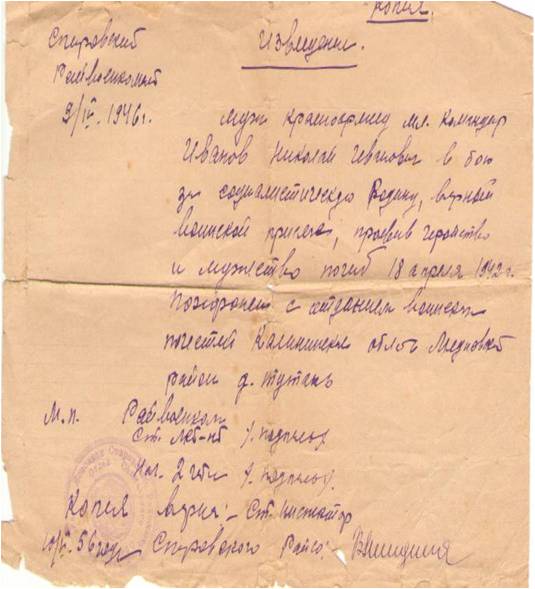 Копия.
Спировский
Извещение.
Райвоенкомат
9/IV. 1946г.
Муж красноармеец мл. командир
Иванов Николай в бою
за социалистическую Родину, верный
воинской присяге, проявив геройство
и мужество погиб 18 апреля 1942г.
Похоронен с отданием воинских
почестей Калининская область Медновский
район д. Тутань
М.п. Райвоенком
Ст. лейт-нт /подпись/
Нач. 2 части /подпись/.
Копия верна:- Ст. инспектор
56 года Спировского Райсо:-